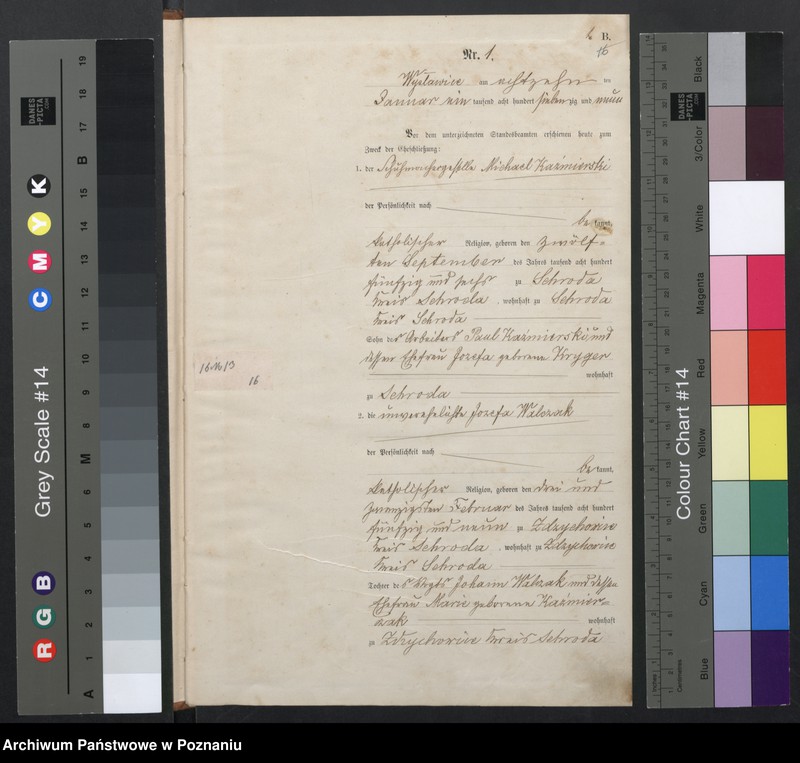 B.
16
Nr. 1.
Wyslawice am achtzehn ten
Januar ein tausend acht hundert siebenzig und neun
Vor dem unterzeichneten Standesbeamten erschienen heute zum
Zweck der Eheschließung:
1. der Schuhmachergeselle Michael Kaźmierski
der Persönlichkeit nach
be kannt,
katholischer Religion, geboren den zwölf-
ten September des Jahres tausend acht hundert
fünfzig und sechs zu Schroda
Kreis Schroda, wohnhaft zu Schroda
Kreis Schroda
Sohn des Arbeiters Paul Kaźmierski und
dessen Ehefrau Jozefa geborene Kryger
wohnhaft
zu Schroda
2. die unverehelichte Jozefa Walczak
der Persönlichkeit nach
be kannt,
katholischer Religion, geboren den drei und
zwanzigsten Februar des Jahres tausend acht hundert
fünfzig und neun zu Zdzychowice
Kreis Schroda, wohnhaft zu Zdzychowice
Kreis Schroda
Tochter des Vogts Johann Walczak und dessen
Ehefrau Marie geborene Kaźmier-
czak wohnhaft
zu Zdzychowice Kreis Schroda
16
Grey Scale #14
DANES
-PICTA
.COM
C M Y K
R G B
A 1 2 3 4 5 6 M 8 9 10 11 12 13 14 15 B 17 18 19
Colour Chart #14
DANES
-PICTA
.COM
Black
3/Color
White
Magenta
Red
Yellow
Green
Cyan
Blue
Inches
Centimetres
Archiwum Państwowe w Poznaniu